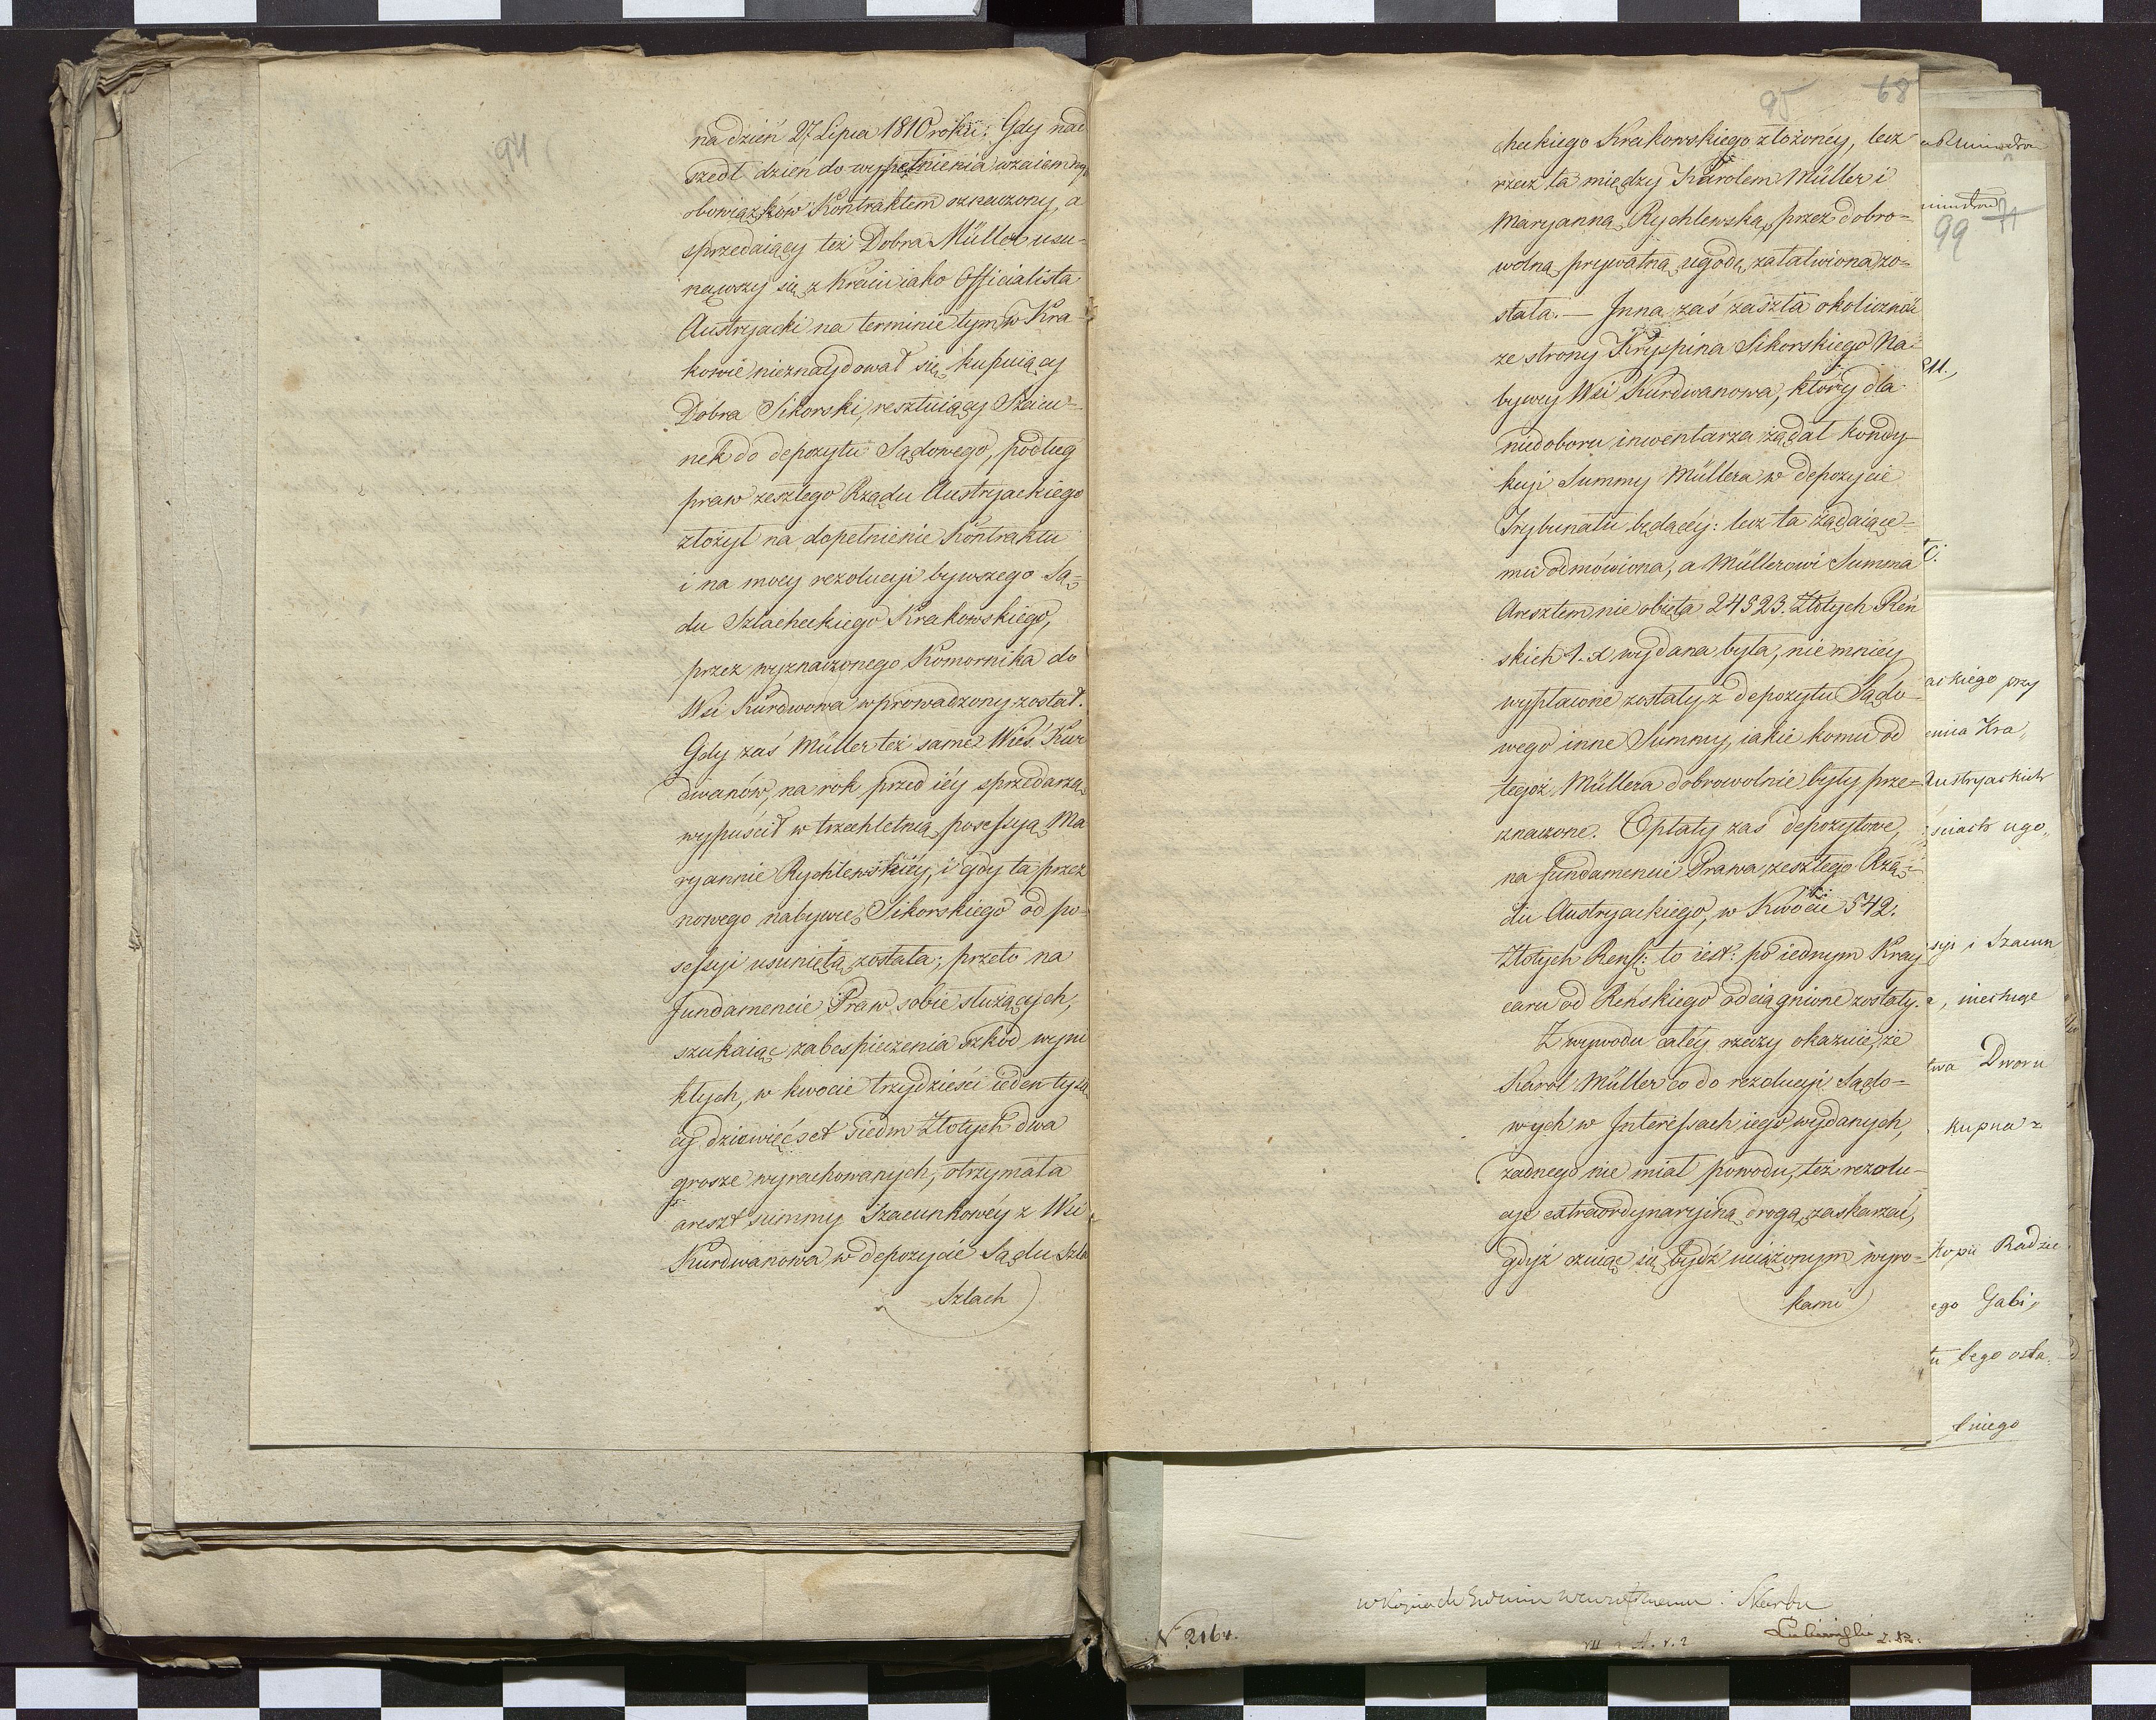 94
na dzień 27 Lipca 1810 roku: Gdy nad
szedł dzień do wypełnienia wzaiemnych
obowiązków Kontraktem oznaczony, a
sprzedaiący też Dobra Müller usu-
nąwszy się z Kraiu iako Officialista
Austryacki na terminie tym w Kra-
kowie nieznaydował się, kupuiący
Dobra Sikorski, resztuiący Szacu-
nek do depozytu Sądowego, podług
praw zeszłego Rządu Austryackiego
złożył na dopełnienie Kontraktu
i na mocy rezolucyi bywszego Są-
du Szlacheckiego Krakowskiego,
przez wyznaczonego Komornika do
Wsi Kurdwowa wprowadzony został.
Gdy zaś Müller też samę Wieś Kur
dwanów, na rok przed iéy sprzedarzą
wypuścił w trzechletnią possessyą Ma
ryannie Rychlewskiéy, i gdy ta przez
nowego nabywcę Sikorskiego od po-
sessyi usuniętą została; przeto na
fundamencie Praw sobie służących,
szukaiąc zabespieczenia szkód wyni
kłych, w kwocie trzydzieści ieden tysię
cy dziewięćset siedm Złotych dwa
grosze wyrachowanych, otrzymała
areszt summy Szacunkowéy z Wsi
Kurdwanowa w depozycie Sądu Szla
Szlach
95 68
checkiego Krakowskiego złożonéy, lecz
rzecz ta między Karolem Müller i
Maryanną Rychlewską, przez dobro-
wolną prywatną ugodę załatwiona zo-
stała. — Inna zaś zaszła okoliczność
ze strony Kryspina Sikorskiego Na-
bywcy Wsi Kurdwanowa, który dla
niedoboru inwentarza żądał kondy-
kcyi Summy Müllera w depozycie
Trybunału będącéy: lecz ta żądaiące-
mu odmówiona, a Müllerowi Summa
Aresztem nie obięta 24523. Złotych Reń
skich 1. x wydana była, nie mniéy
wypłacone zostały z depozytu Sądo-
wego inne Summy, iakie komu od
tegoż Müllera dobrowolnie były prze-
znaczone. Opłaty zaś depozytowe,
na fundamencie Prawa zeszłego Rzą-
du Austryackiego, w Kwocie 542.
Złotych Reńs: to iest: po iednym Kray
caru od Reńskiego odciągnione zostały.
Z wywodu całéy rzeczy okazuie, że
Karol Müller co do rezolucyi Sądo-
wych w Interessach iego wydanych,
żadnego nie miał powodu, też rezolu-
cye extraordynaryiną drogą zaskarżać,
gdyż czuiąc się bydź uciążonym wyro-
kami
99 71
ackiego przy
enia Kra,
Austryackich
ściach ugo,,
syi i Szacun
a, niesługe
twa Dworu
kupna z
kopii Radzie
ego Gabi,,
tu tego osta,
tniego
Skarbu
N 216